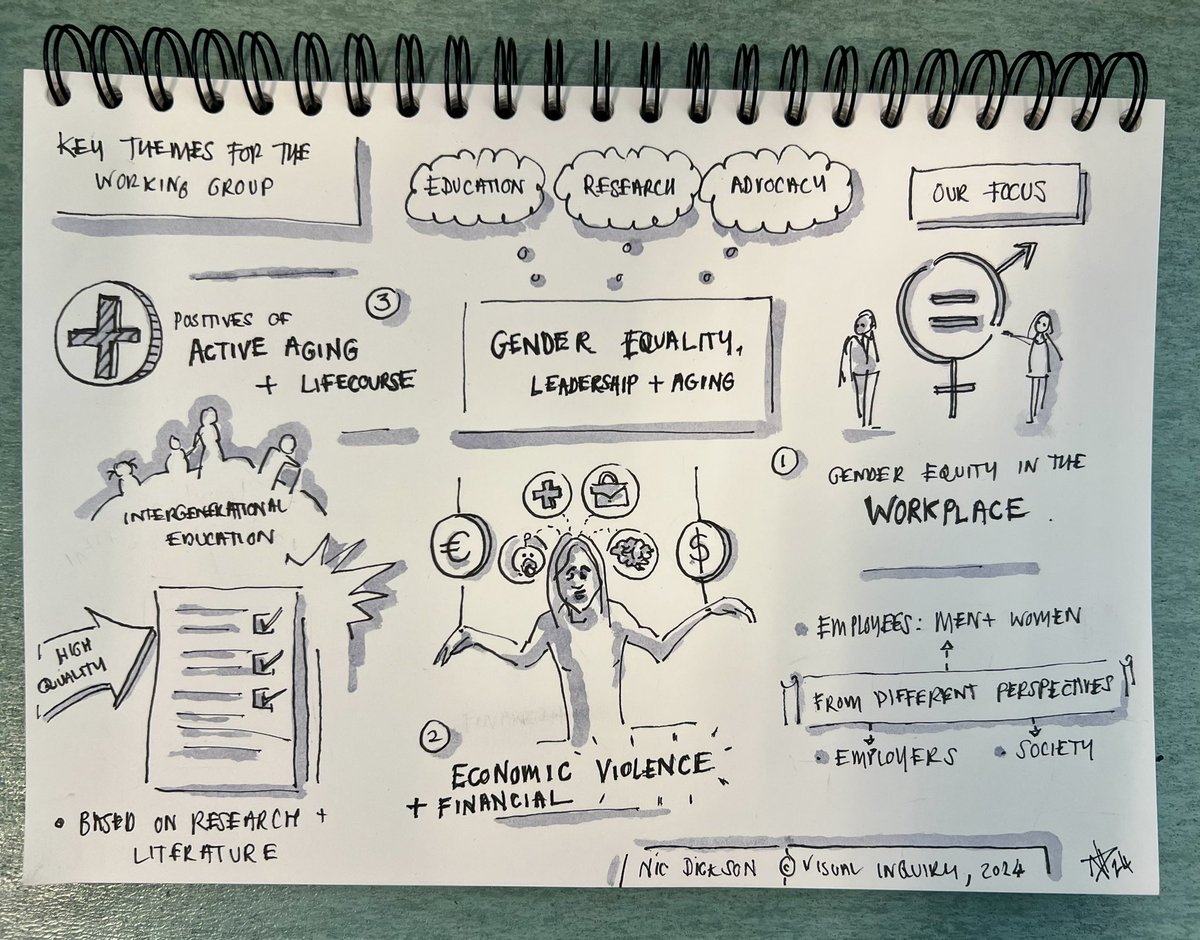 KEY THEMES FOR THE
WORKING GROUP
EDUCATION
RESEARCH
ADVOCACY
OUR FOCUS
GENDER EQUALITY,
LEADERSHIP + AGING
3
POSITIVES OF
ACTIVE AGING
+ LIFECOURSE
INTERGENERATIONAL
EDUCATION
HIGH
QUALITY
• BASED ON RESEARCH +
LITERATURE
€
$
2
ECONOMIC VIOLENCE
+ FINANCIAL
1
GENDER EQUITY IN THE
WORKPLACE.
• EMPLOYEES: MEN + WOMEN
FROM DIFFERENT PERSPECTIVES
• EMPLOYERS
• SOCIETY
NIC DICKSON © VISUAL INQUIRY, 2024
ND24